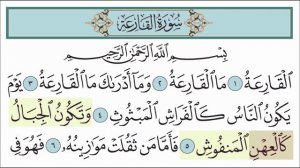 سُورَةُ القَارِعَةِ
بِسْمِ اللَّهِ الرَّحْمَنِ الرَّحِيمِ
الْقَارِعَةُ ١ مَا الْقَارِعَةُ ٢ وَمَا أَدْرَىٰكَ مَا الْقَارِعَةُ ٣ يَوْمَ
يَكُونُ النَّاسُ كَالْفَرَاشِ الْمَبْثُوثِ ٤ وَتَكُونُ الْجِبَالُ
كَالْعِهْنِ الْمَنفُوشِ ٥ فَأَمَّا مَن ثَقُلَتْ مَوَٰزِينُهُۥ ٦ فَهُوَ فِي